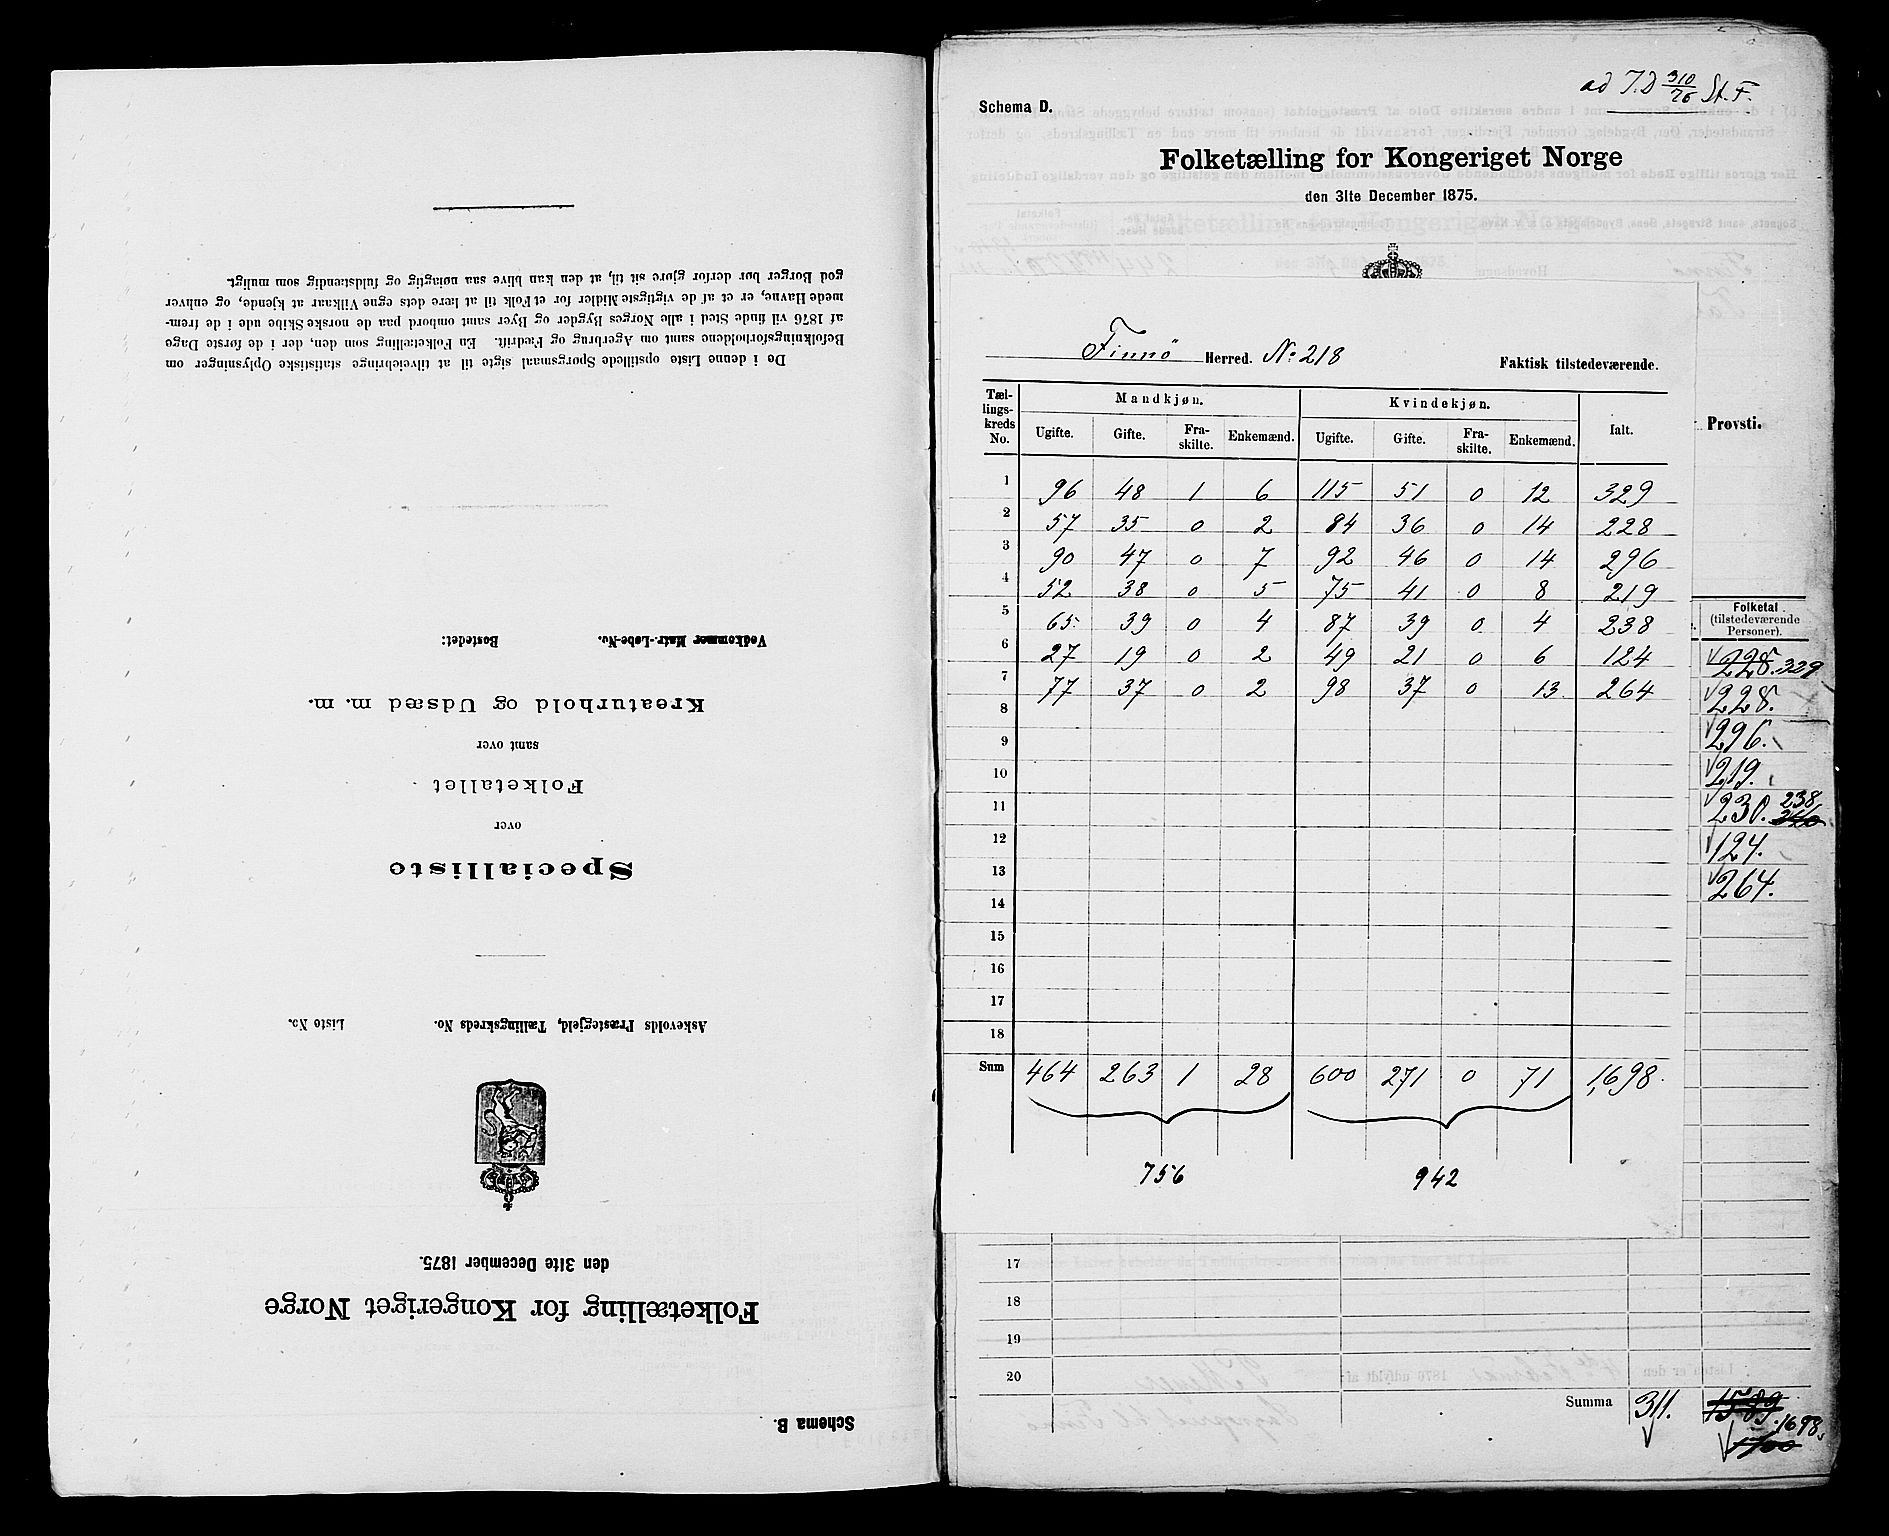 De i denne Liste opstillede Spørgsmaal sigte til at tilveiebringe statistiske Oplysninger om
Befolkningsforholdene samt om Agerbrug og Fædrift. En Folketælling som den, der i de første Dage
af 1876 vil finde Sted i alle Norges Bygder og Byer samt ombord paa de norske Skibe ude i de frem-
mede Havne, er et af de vigtigste Midler for et Folk til at lære dets egne Vilkaar at kjende, og enhver
god Borger bør derfor gjøre sit til, at den kan blive saa nøiagtig og fuldstændig som muligt.
Schema B.
Folketælling for Kongeriget Norge
den 31te December 1875.
Askevolds Præstegjeld, Tællingskreds No. Liste No.
Specialliste
over
Folketallet
samt over
Kreaturhold og Udsæd m. m.
Vedkommer Matr.-Løbe-No. Bostedet:
ad J.D 310/76 St. F.
Schema D.
Folketælling for Kongeriget Norge
den 31te December 1875.
Finnø Herred. No. 218 Faktisk tilstedeværende.
Tæl-lings-kreds No. Mandkjøn. Kvindekjøn. Ialt.
Ugifte. Gifte. Fra-skilte. Enkemænd. Ugifte. Gifte. Fra-skilte. Enkemænd.
1 96 48 1 6 115 51 0 12 329
2 57 35 0 2 84 36 0 14 228
3 90 47 0 7 92 46 0 14 296
4 52 38 0 5 75 41 0 8 219
5 65 39 0 4 87 39 0 4 238
6 27 19 0 2 49 21 0 6 124
7 77 37 0 2 98 37 0 13 264
8
9
10
11
12
13
14
15
16
17
18
Sum 464 263 1 28 600 271 0 71 1,698.
756 942
Provsti.
Folketal
(tilstedeværende
Personer).
228. 329
228.
296.
219.
230. 238
124.
264.
17
18
19
20
Summa 311. 1589 1698.
1700